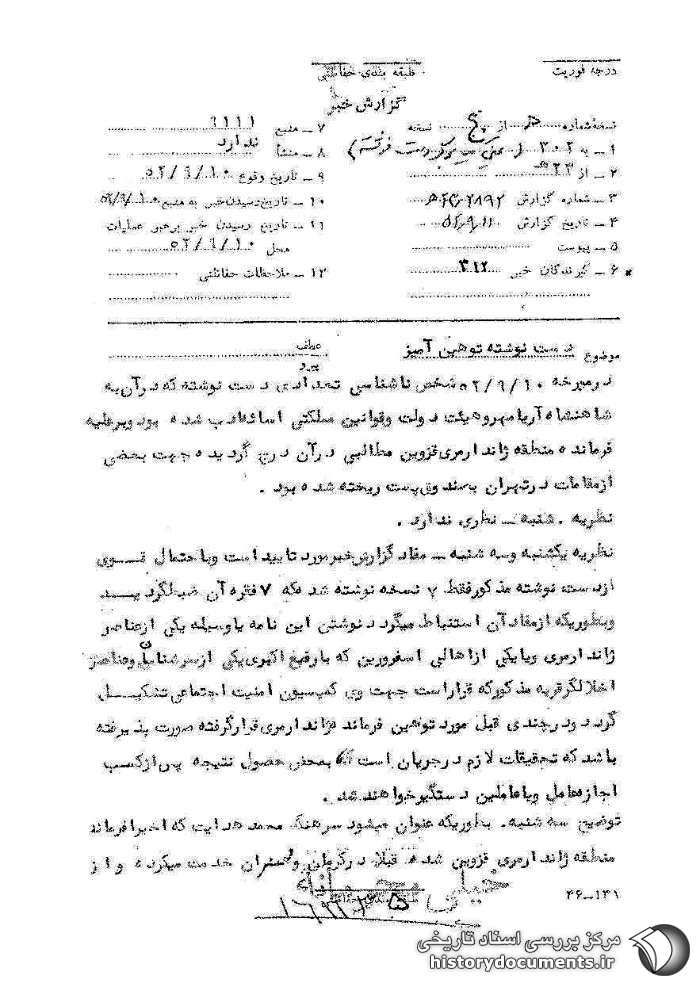 درجه فوریت
طبقه بندی حفاظتی
گزارش خبر
نسخه شماره از پنج نسخه
۱ ــ به ۳۰۲
۲ ــ از ۲۳ ه
۳ ــ شماره گزارش
۴ ــ تاریخ گزارش
۵ ــ پیوست
۶ ــ گیرندگان خبر ۳۱۲
۷ ــ منبع ۹۱۱۱
۸ ــ منشأ ندارد
۹ ــ تاریخ وقوع ۵۲/۹/۱۰
۱۰ ــ تاریخ رسیدن خبر به منبع ۵۲/۹/۱۰
۱۱ ــ تاریخ رسیدن خبر برهبر عملیات
محل ۵۲/۹/۱۰
۱۲ ــ ملاحظات حفاظتی
موضوع دست نوشته توهین آمیز
عطف
پیرو
درمیرخه ۵۲/۹/۱۰ شخص ناشناسی تعدادی دست نوشته که درآن به
شاهنشاه آریامهر وهیئت دولت وقوانین مملکتی اسائه ادب شده بود وبرعلیه
فرمانده منطقه ژاندارمری قزوین مطالبی درآن درج گردیده جهت بعضی
ازمقامات درتهران بصندوق پست ریخته شده بود .
نظریه . شنبه ــ نظری ندارد .
نظریه یکشنبه وسه شنبه ــ مفاد گزارش خبر مورد تایید است وباحتمال قوی
ازدست نوشته مذکور فقط ۷ نسخه نوشته شده که ۷ فقره آن ضبط گردید
وبطوریکه ازمفاد آن استنباط میگردد نوشتن این نامه یا وسیله یکی ازعناصر
ژاندارمری ویا یکی ازاهالی اسفرورین که بارفیع اکبری یکی ازسرشناسان وعناصر
اخلالگر قریه مذکور که قرار است جهت وی کمیسیون امنیت اجتماعی تشکیل
گردد ودرچندی قبل مورد توهین فرمانده ژاندارمری قرار گرفته صورت پذیرفته
باشد که تحقیقات لازم درجریان است که بمحض حصول نتیجه پس ازکسب
اجازه عامل ویا عاملین دستگیر خواهند شد .
توضیح سه شنبه . بطوریکه عنوان میشود سرهنگ محمد هدایت که اخیرا فرمانده
منطقه ژاندارمری قزوین شده قبلا درکرمان و خدمت میکرده واز
خیلی محرمانه
۴۶ــ۱۳۱
مرکز بررسی اسناد تاریخی
historydocuments.ir